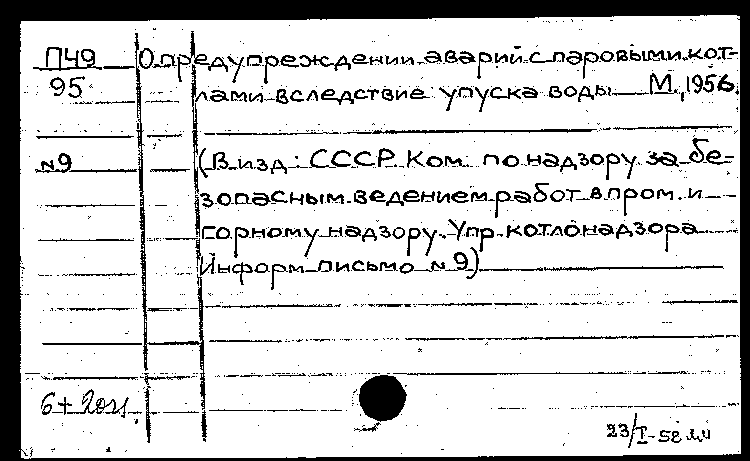 П49 О предупреждении аварий с паровыми кот-
95 лами вследствие упуска воды М., 1956.
№9 (В изд: СССР. Ком. по надзору за бе-
зопасным ведением работ в пром. и
горному надзору. Упр. котлонадзора
Информ письмо №9)
6+
23/I-58